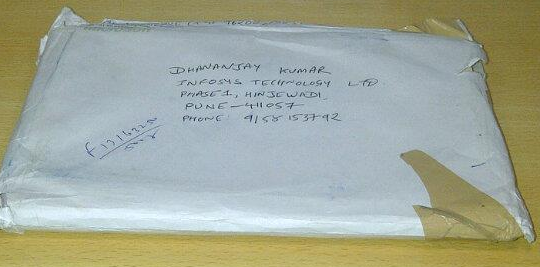 DHANANJAY KUMAR
INFOSYS TECHNOLOGY LTD
PHASE 1, HINJEWADI
PUNE - 411057
PHONE: 9158153792